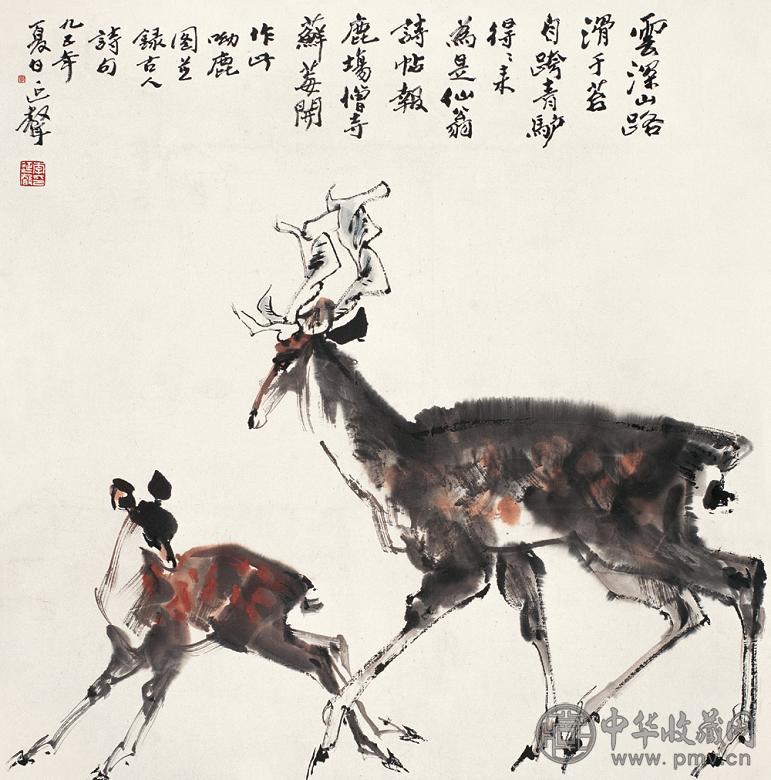 雲深山路
滑于苔
自跨青驢
得〻来
為是仙翁
詩帖報
鹿場僧寺
蘚莓開
作此
呦鹿
图並
録古人
詩句
九五年
夏日 聲
中华收藏网
www.pmv.cn